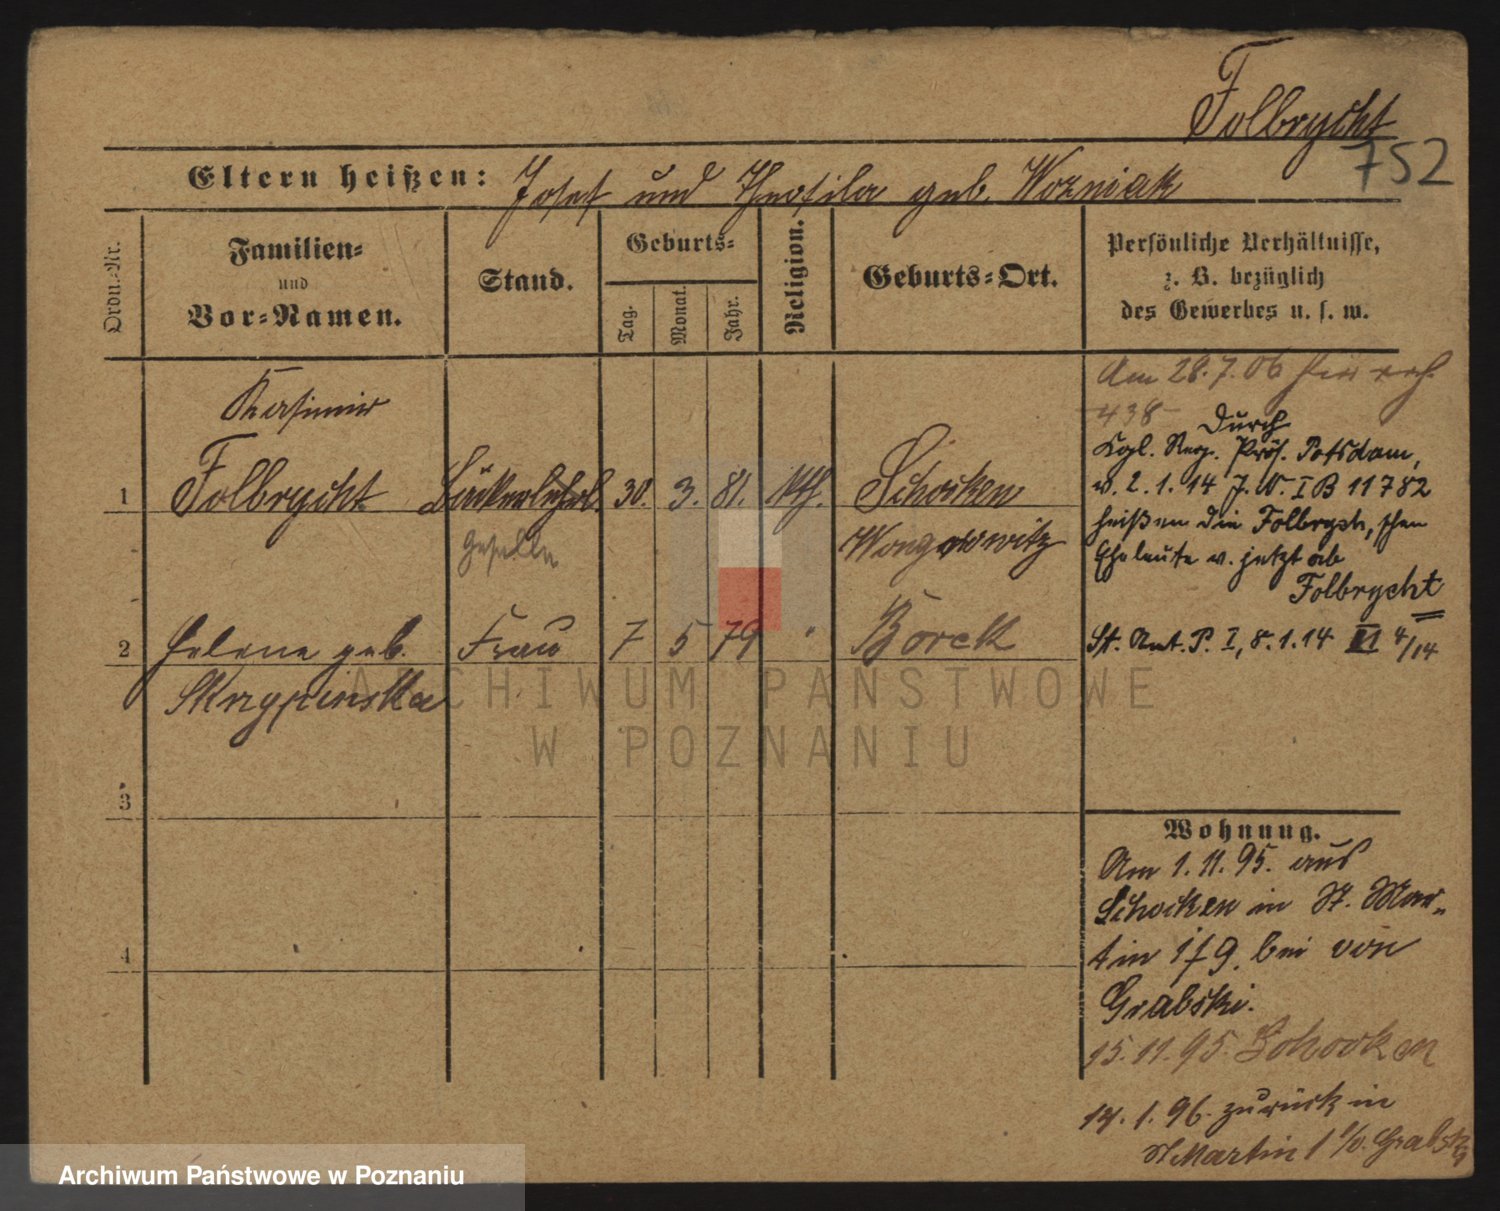 Folbrycht
752
Eltern heißen: Josef und Theofila geb. Wozniak
Ordn.-Nr.
Familien-
und
Vor-Namen.
Stand.
Geburts-
Tag.
Monat.
Jahr.
Religion.
Geburts-Ort.
Persönliche Verhältnisse,
z. B. bezüglich
des Gewerbes u. s. w.
Am 28.7.06 hier
438
Kasimir
1 Folbrycht Bäckerlehrl. 30. 3. 81. kth. Schocken
Geselle
Wongrowitz
Durch
Kgl. Reg. Präs. Potsdam,
v. 2.1.14 J. N. I B 11782
heißen die Folbrycht, schen
Eheleute v. jetzt ab
Folbrycht
St. Ant. P. I, 8.1.14 III 4/14
2 Helene geb. Frau 7 5 79 " Borek
Skrzypinska
3
4
Wohnung.
Am 1.11.95. aus
Schocken in St. Mar-
tin 1/9. bei von
Grabski.
15.11.95. Schocken
14.1.96. zurück in
St Martin 1 b/v. Grabski
ARCHIWUM PAŃSTWOWE
W POZNANIU
Archiwum Państwowe w Poznaniu